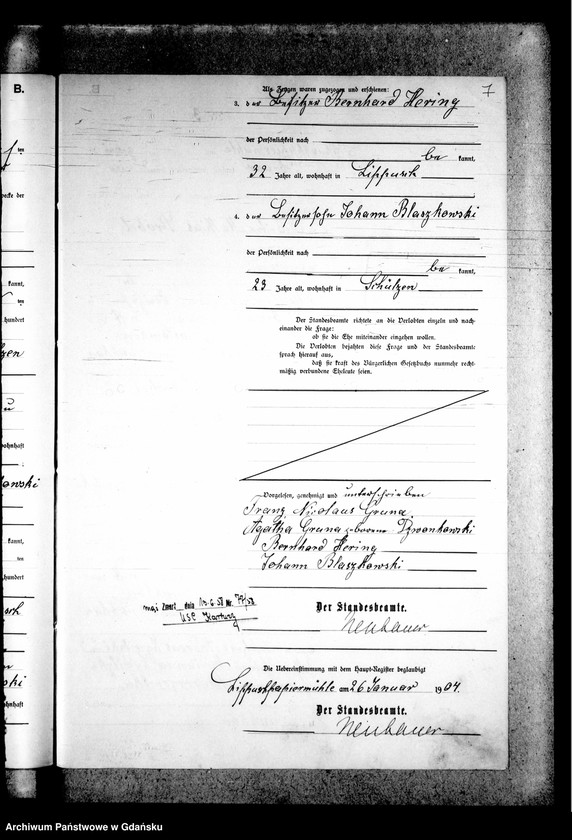 B.
7
Als Zeugen waren zugezogen und erschienen:
3. der Besitzer Bernhard Hering
der Persönlichkeit nach
be kannt,
32 Jahre alt, wohnhaft in Lippusch
4. der Besitzersohn Johann Blaszkowski
der Persönlichkeit nach
be kannt,
23 Jahre alt, wohnhaft in Schülzen
Der Standesbeamte richtete an die Verlobten einzeln und nach-
einander die Frage:
ob sie die Ehe miteinander eingehen wollen.
Die Verlobten bejahten diese Frage und der Standesbeamte
sprach hierauf aus,
daß sie kraft des Bürgerlichen Gesetzbuchs nunmehr recht-
mäßig verbundene Eheleute seien.
Vorgelesen, genehmigt und unterschrieben
Franz Nicolaus Gruna
Agatha Gruna geborene Dzwonkowski
Bernhard Hering
Johann Blaszkowski
Der Standesbeamte.
Neubauer
mąż Zmarł dnia 6.58 Nr. 77/58
USC Kartuzy
Die Uebereinstimmung mit dem Haupt-Register beglaubigt
Lippuschpapiermühle am 26 Januar 1904.
Der Standesbeamte.
Neubauer
Archiwum Państwowe w Gdańsku